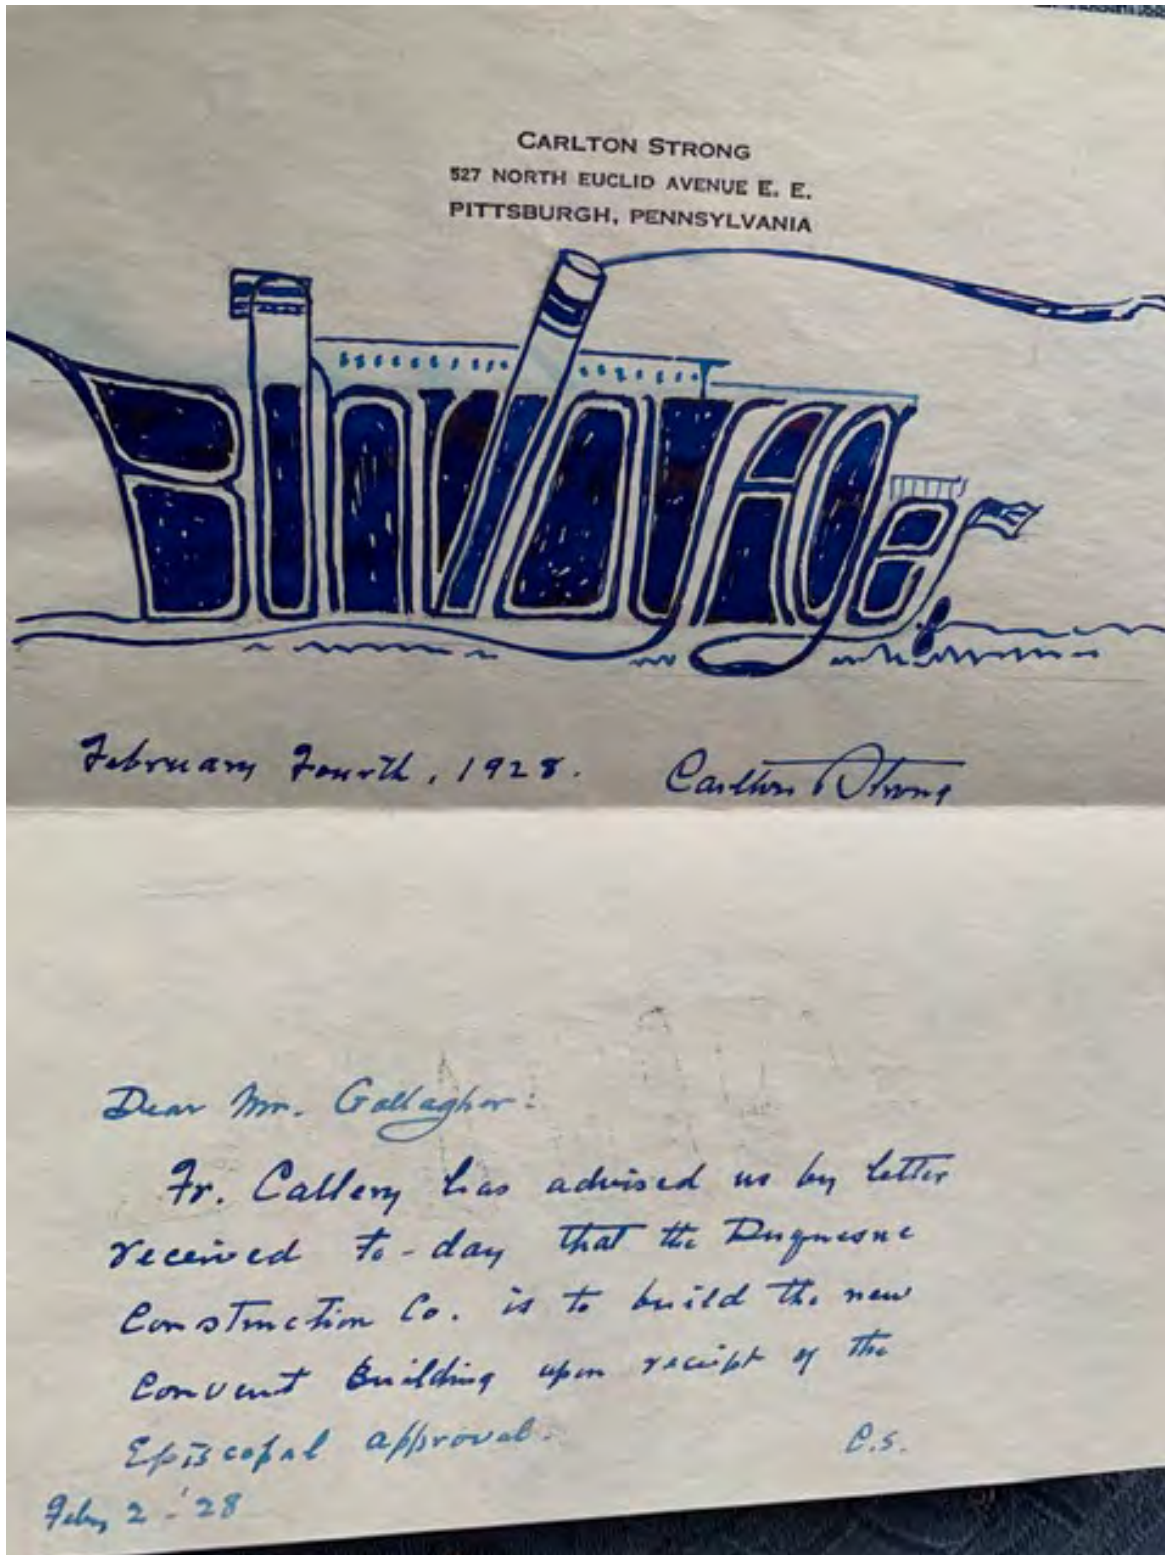 CARLTON STRONG
527 NORTH EUCLID AVENUE E. E.
PITTSBURGH, PENNSYLVANIA
BON VOYAGE
February Fourth, 1928. Carlton Strong
Dear Mr. Gallagher:
Fr. Callery has advised us by letter
received to-day that the Duquesne
Construction Co. is to build the new
Convent Building upon receipt of the
Episcopal approval. C.S.
Feby 2 - '28